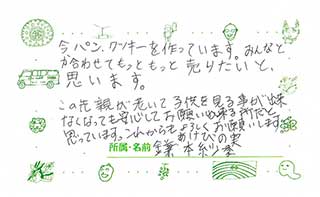 今パン、クッキーを作っています。みんなと
力合わせてもっともっと売りたいと、
思います。
この先親が老いて子供を見る事が出来
なくなっても安心してお願い出来る所だと
思っています。これからもよろしくお願いします。
あけびの実
所属・名前 鎌本紗季